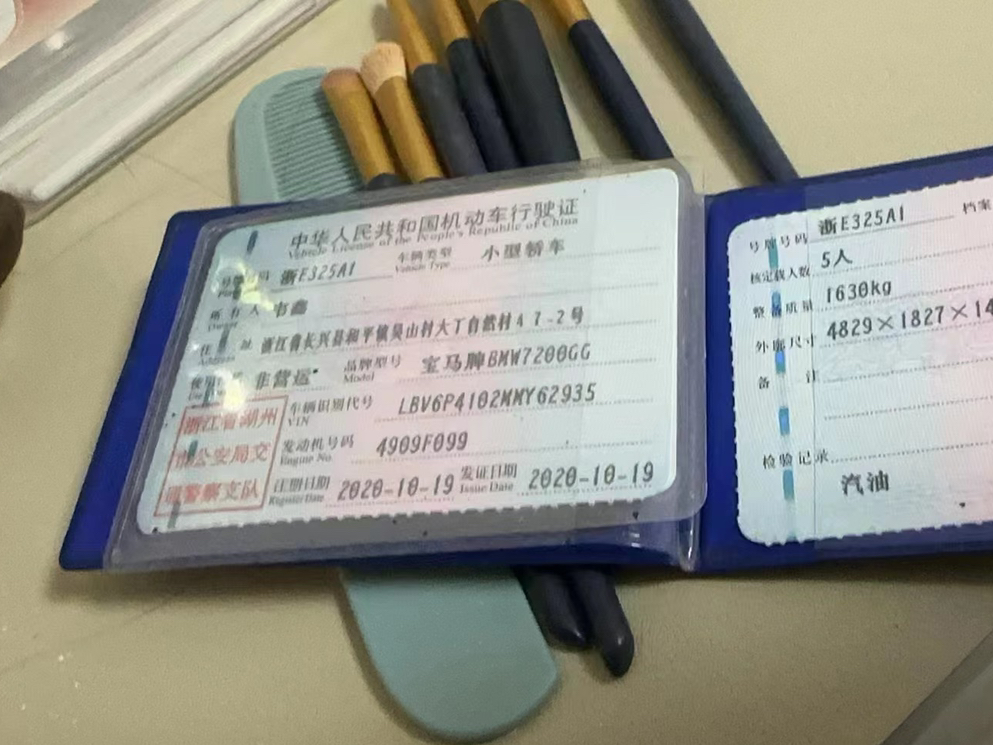 中华人民共和国机动车行驶证
Vehicle License of the People's Republic of China
号牌号码 浙E325A1 车辆类型 小型轿车
Vehicle Type
所有人 韦鑫
Owner
住址 浙江省长兴县和平镇吴山村大丁自然村47-2号
Address
使用性质 非营运 品牌型号 宝马牌BMW7200GG
Model
浙江省湖州
市公安局交
通警察支队
车辆识别代号 LBV6P4102MMY62935
VIN
发动机号码 4909F099
Engine No.
注册日期 2020-10-19 发证日期 2020-10-19
Register Date Issue Date
号牌号码 浙E325A1 档案
核定载人数 5人
整备质量 1630kg
外廓尺寸 4829×1827×14
备 注
检验记录
汽油